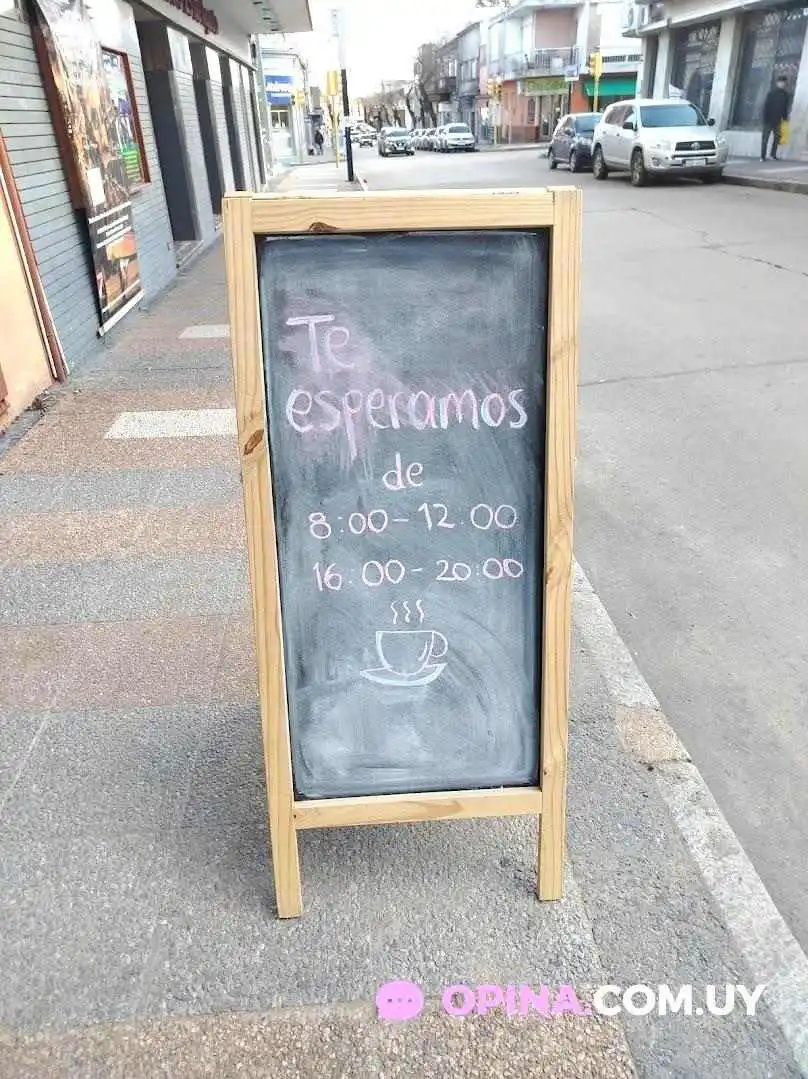 Te
esperamos
de
8:00-12.00
16:00-20:00
OPINA.COM.UY